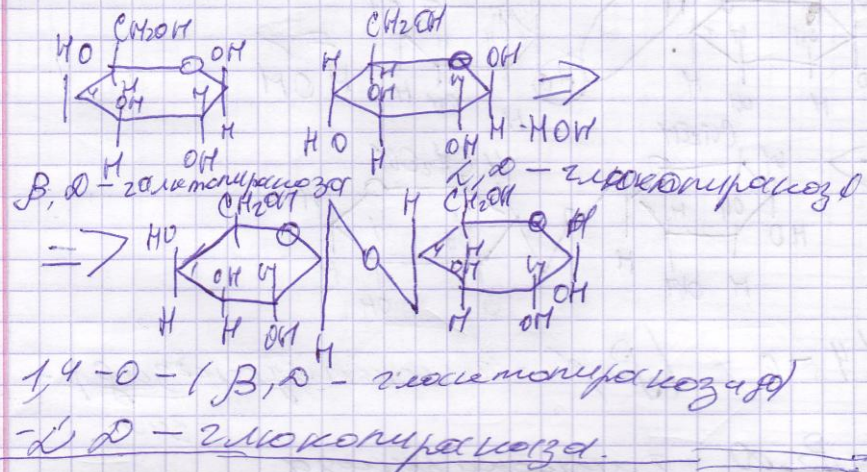 CH2OH CH2OH
HO O OH H O OH
H H H H
OH H OH H
H H H -HOH
H OH HO H OH
β, D - галактопираноза α, D - глюкопираноз
CH2OH H CH2OH
HO O O O H
OH H OH H OH
H H OH H H OH
1,4 - O - ( β, D - галактопиранозидо)
- α D - глюкопираноза.